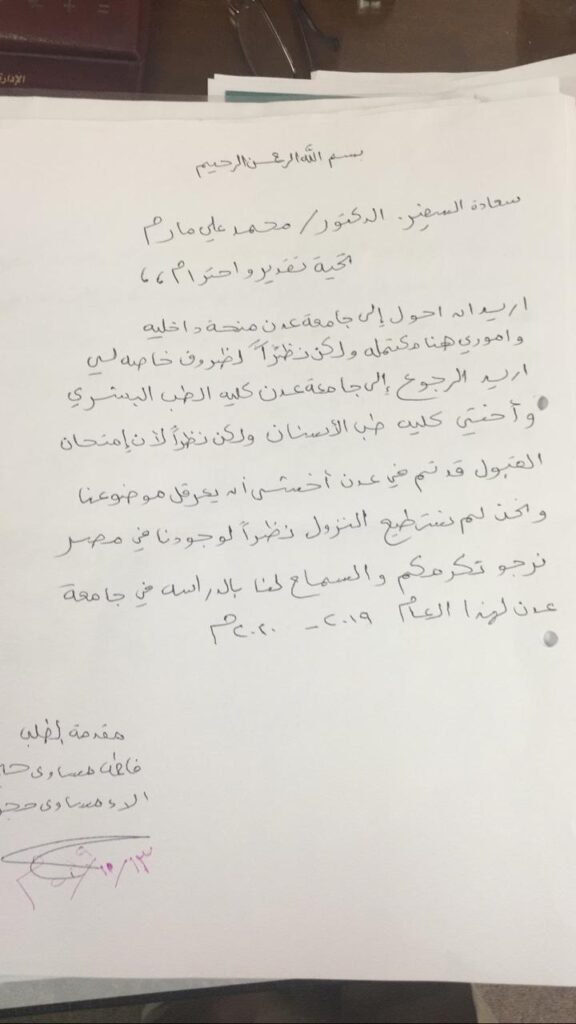 الإدارة
بسم الله الرحمن الرحيم
سعادة السفير. الدكتور/ محمد علي مارم
تحية تقدير واحترام ،،
اريد ان احول إلى جامعة عدن منحة داخليه
واموري هنا مكتمله ولكن نظرًا لظروف خاصه لي
اريد الرجوع إلى جامعة عدن كليه الطب البشري
وأختي كليه طب الأسنان ولكن نظراً لأن إمتحان
القبول قد تم في عدن أخشى أن يعرقل موضوعنا
ونحن لم نستطيع النزول نظراً لوجودنا في مصر
نرجو تكرمكم والسماع لنا بالدراسه في جامعة
عدن لهذا العام ٢٠١٩ - ٢٠٢٠م
مقدمة الطلب
فاطمة مساوى
الاء مساوى
١٠/١٣